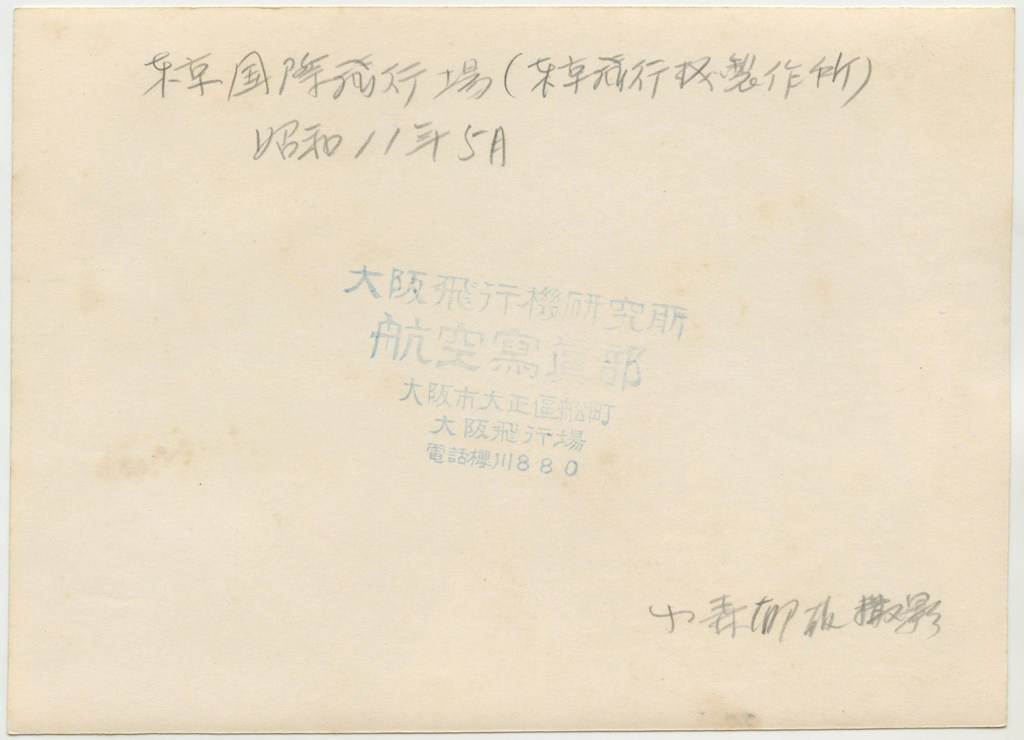 東京国際飛行場(東京飛行機製作所)
昭和11年5月
大阪飛行機研究所
航空寫眞部
大阪市大正區船町
大阪飛行場
電話櫻川880
小森郁 撮影